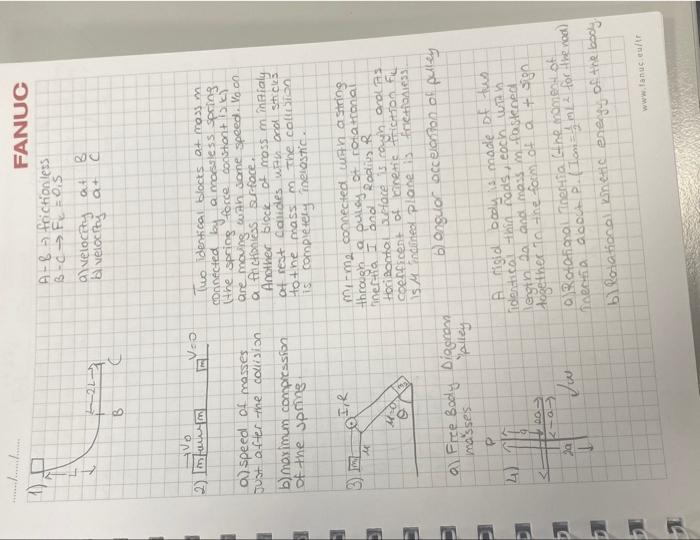 FANUC
1)
A-B → frictionless
B-C → Fk = 0,5
a) velocity at B
b) velocity at C
2L
B
C
2)
V0
m
m
m
V=0
Two identical blocks at mass m
connected by a massless spring
(the spring force constant is k)
are moving with same speed. Vo on
a frictionless surface.
Another block of mass m initialy
at rest collides with and sticks
to the mass m The collision
is completely inelastic.
a) speed of masses
just after the collision
b) maximum compression
of the spring.
3)
m
I,R
M
θ
m1-m2 connected with a string
through a pulley of rotational
inertia I and Radius R
Horizontal surface is rough and its
coefficent of kinetic friction Fk
is M inclined plane is frictionless.
a) Free Body Diagram
masses pulley
b) angular acceleration of pulley
4)
P
2a
a
2a
w
A rigid body is made of two
identical thin rods, each with
length 2a and mass m fastened
together in the form of a + sign
a) Rotational inertia (the moment of
inertia about P. (Icm = 1/12 ml2 for the rod)
b) Rotational kinetic energy of the body
www.fanuc.eu/tr